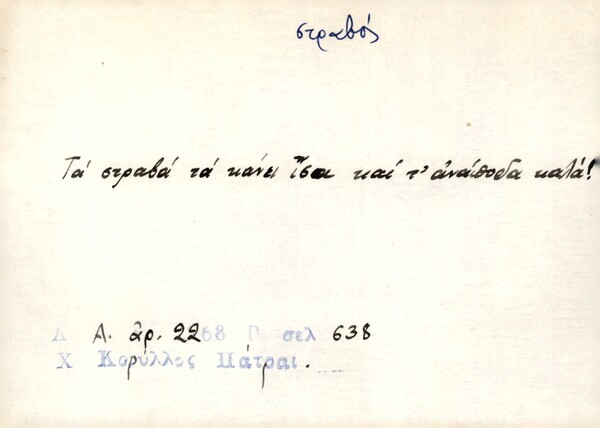 στραβός
Τά στραβά τά κάνει ἴσα καί τ' ἀνάποδα καλά!
Λ Α. ἀρ. 2268 Γ σελ 638
Χ Κορύλλος Πάτραι.